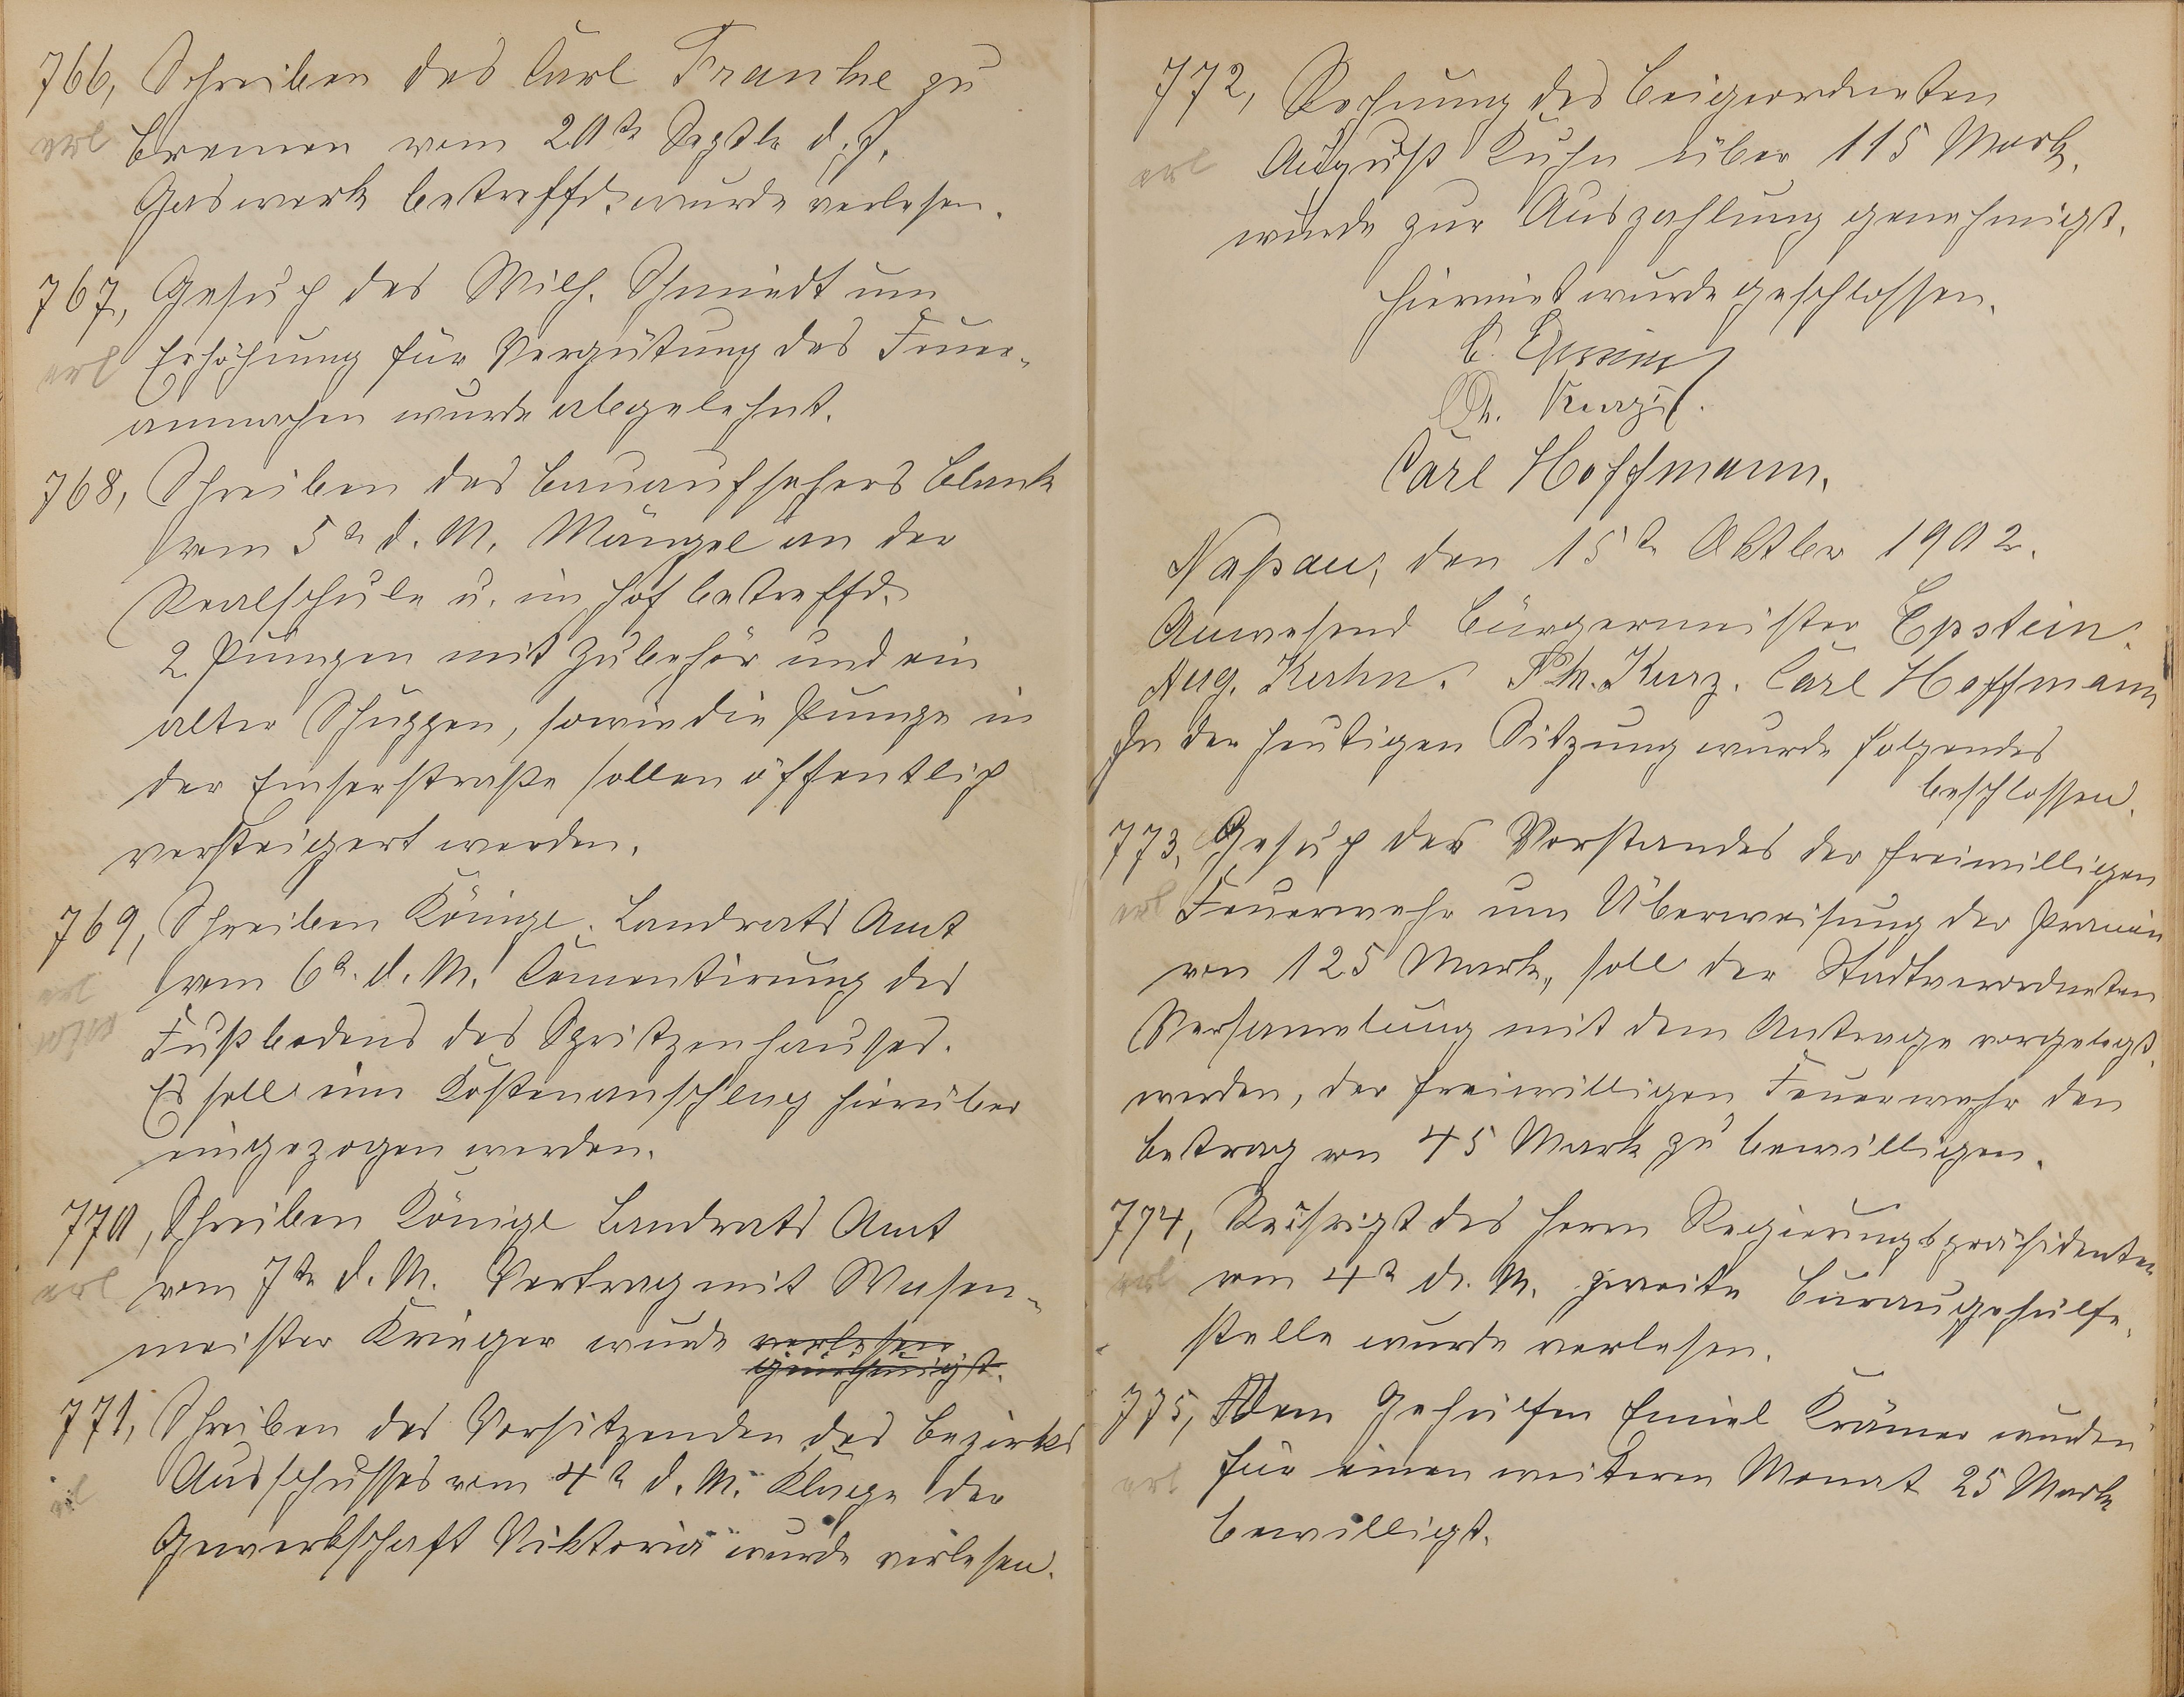 766, Schreiben des Carl Franke zu
erl Bremen vom 20te Septbr d. J.
Gaswerk betreffd. wurde verlesen.
767, Gesuch des Wilh. Schmidt um
erl Erhöhung für Vergütung des Feuer-
anmachen wurde abgelehnt.
768, Schreiben des Bauaufsehers Blank
vom 5te d. M. Mängel an der
Realschule u. im Hof betreffd.
2 Pumpen mit Zubehör und ein
alter Schuppen, sowie die Pumpe in
der Emserstraße sollen öffentlich
versteigert werden.
769, Schreiben Königl. Landrats Amt
vom 6te d. M. Cementirung des
Fußbodens des Spritzenhauses.
Es soll ein Kostenanschlag hierüber
eingezogen werden.
770, Schreiben Königl Landrats Amt
erl vom 7te d. M. Vertrag mit Wasen-
meister Krieger wurde verlesen
genehmigt.
771, Schreiben des Vorsitzenden des Bezirks
Ausschusses vom 4te d. M. Klage der
Gewerkschaft Viktoria wurde verlesen.
772, Rechnung des Beigeordneten
erl August Kuhn über 115 Mark,
wurde zur Auszahlung genehmigt.
Hiermit wurde geschlossen.
Carl Hoffmann.
Naßau, den 15te Oktbr 1902.
Anwesend Bürgermeister Epstein.
Aug. Kuhn. Ph. Kurz. Carl Hoffmann
In der heutigen Sitzung wurde folgendes
beschlossen.
773, Gesuch des Vorstandes der freiwilligen
erl Feuerwehr um Überweisung der Prämie
von 125 Mark, soll der Stadtverordneten
Versamelung mit dem Antrage vorgelegt
werden, der freiwilligen Feuerwehr den
Betrag von 45 Mark zu bewilligen.
774, des Herrn Regierungspräsidenten
erl vom 4te d. M. zweite Büraugehülfe
stelle wurde verlesen.
775, Dem Gehülfen Emiel Krämer wurden
erl für einen weiteren Monat 25 Mark
bewilligt.